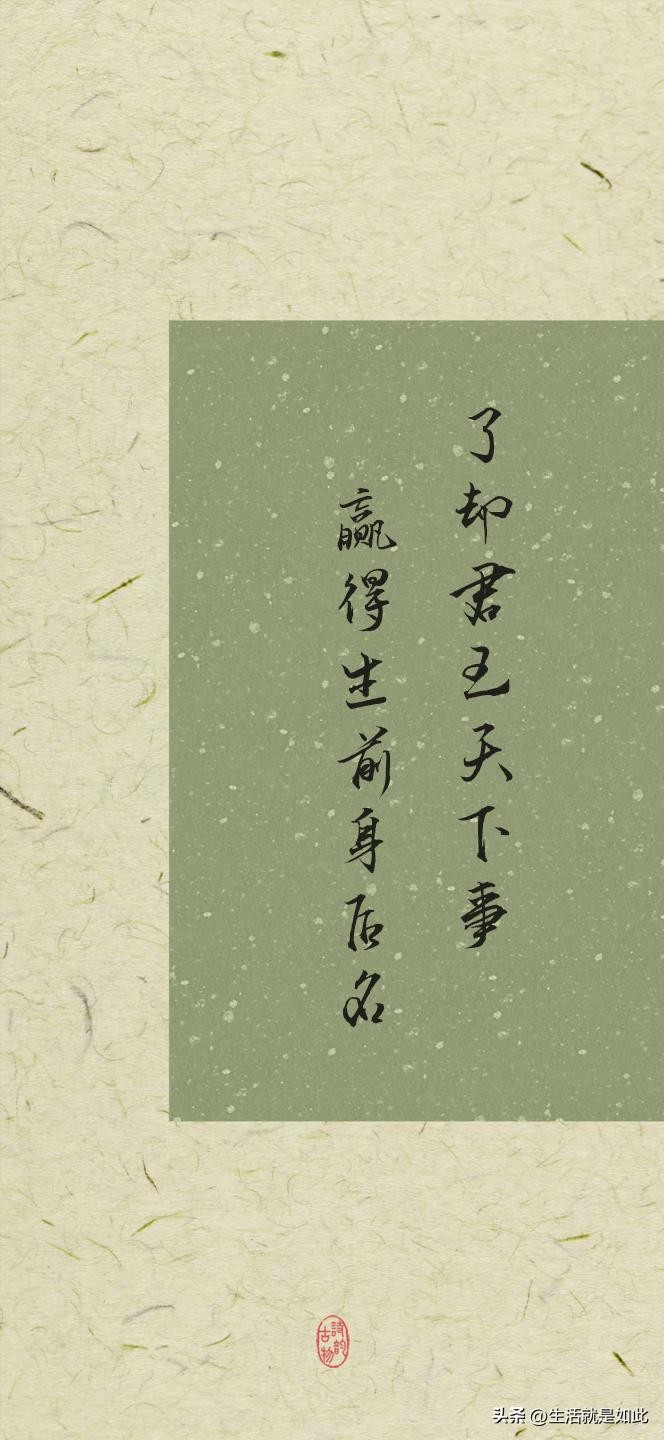 了却君王天下事
赢得生前身后名
詩韵
古物
头条 @生活就是如此